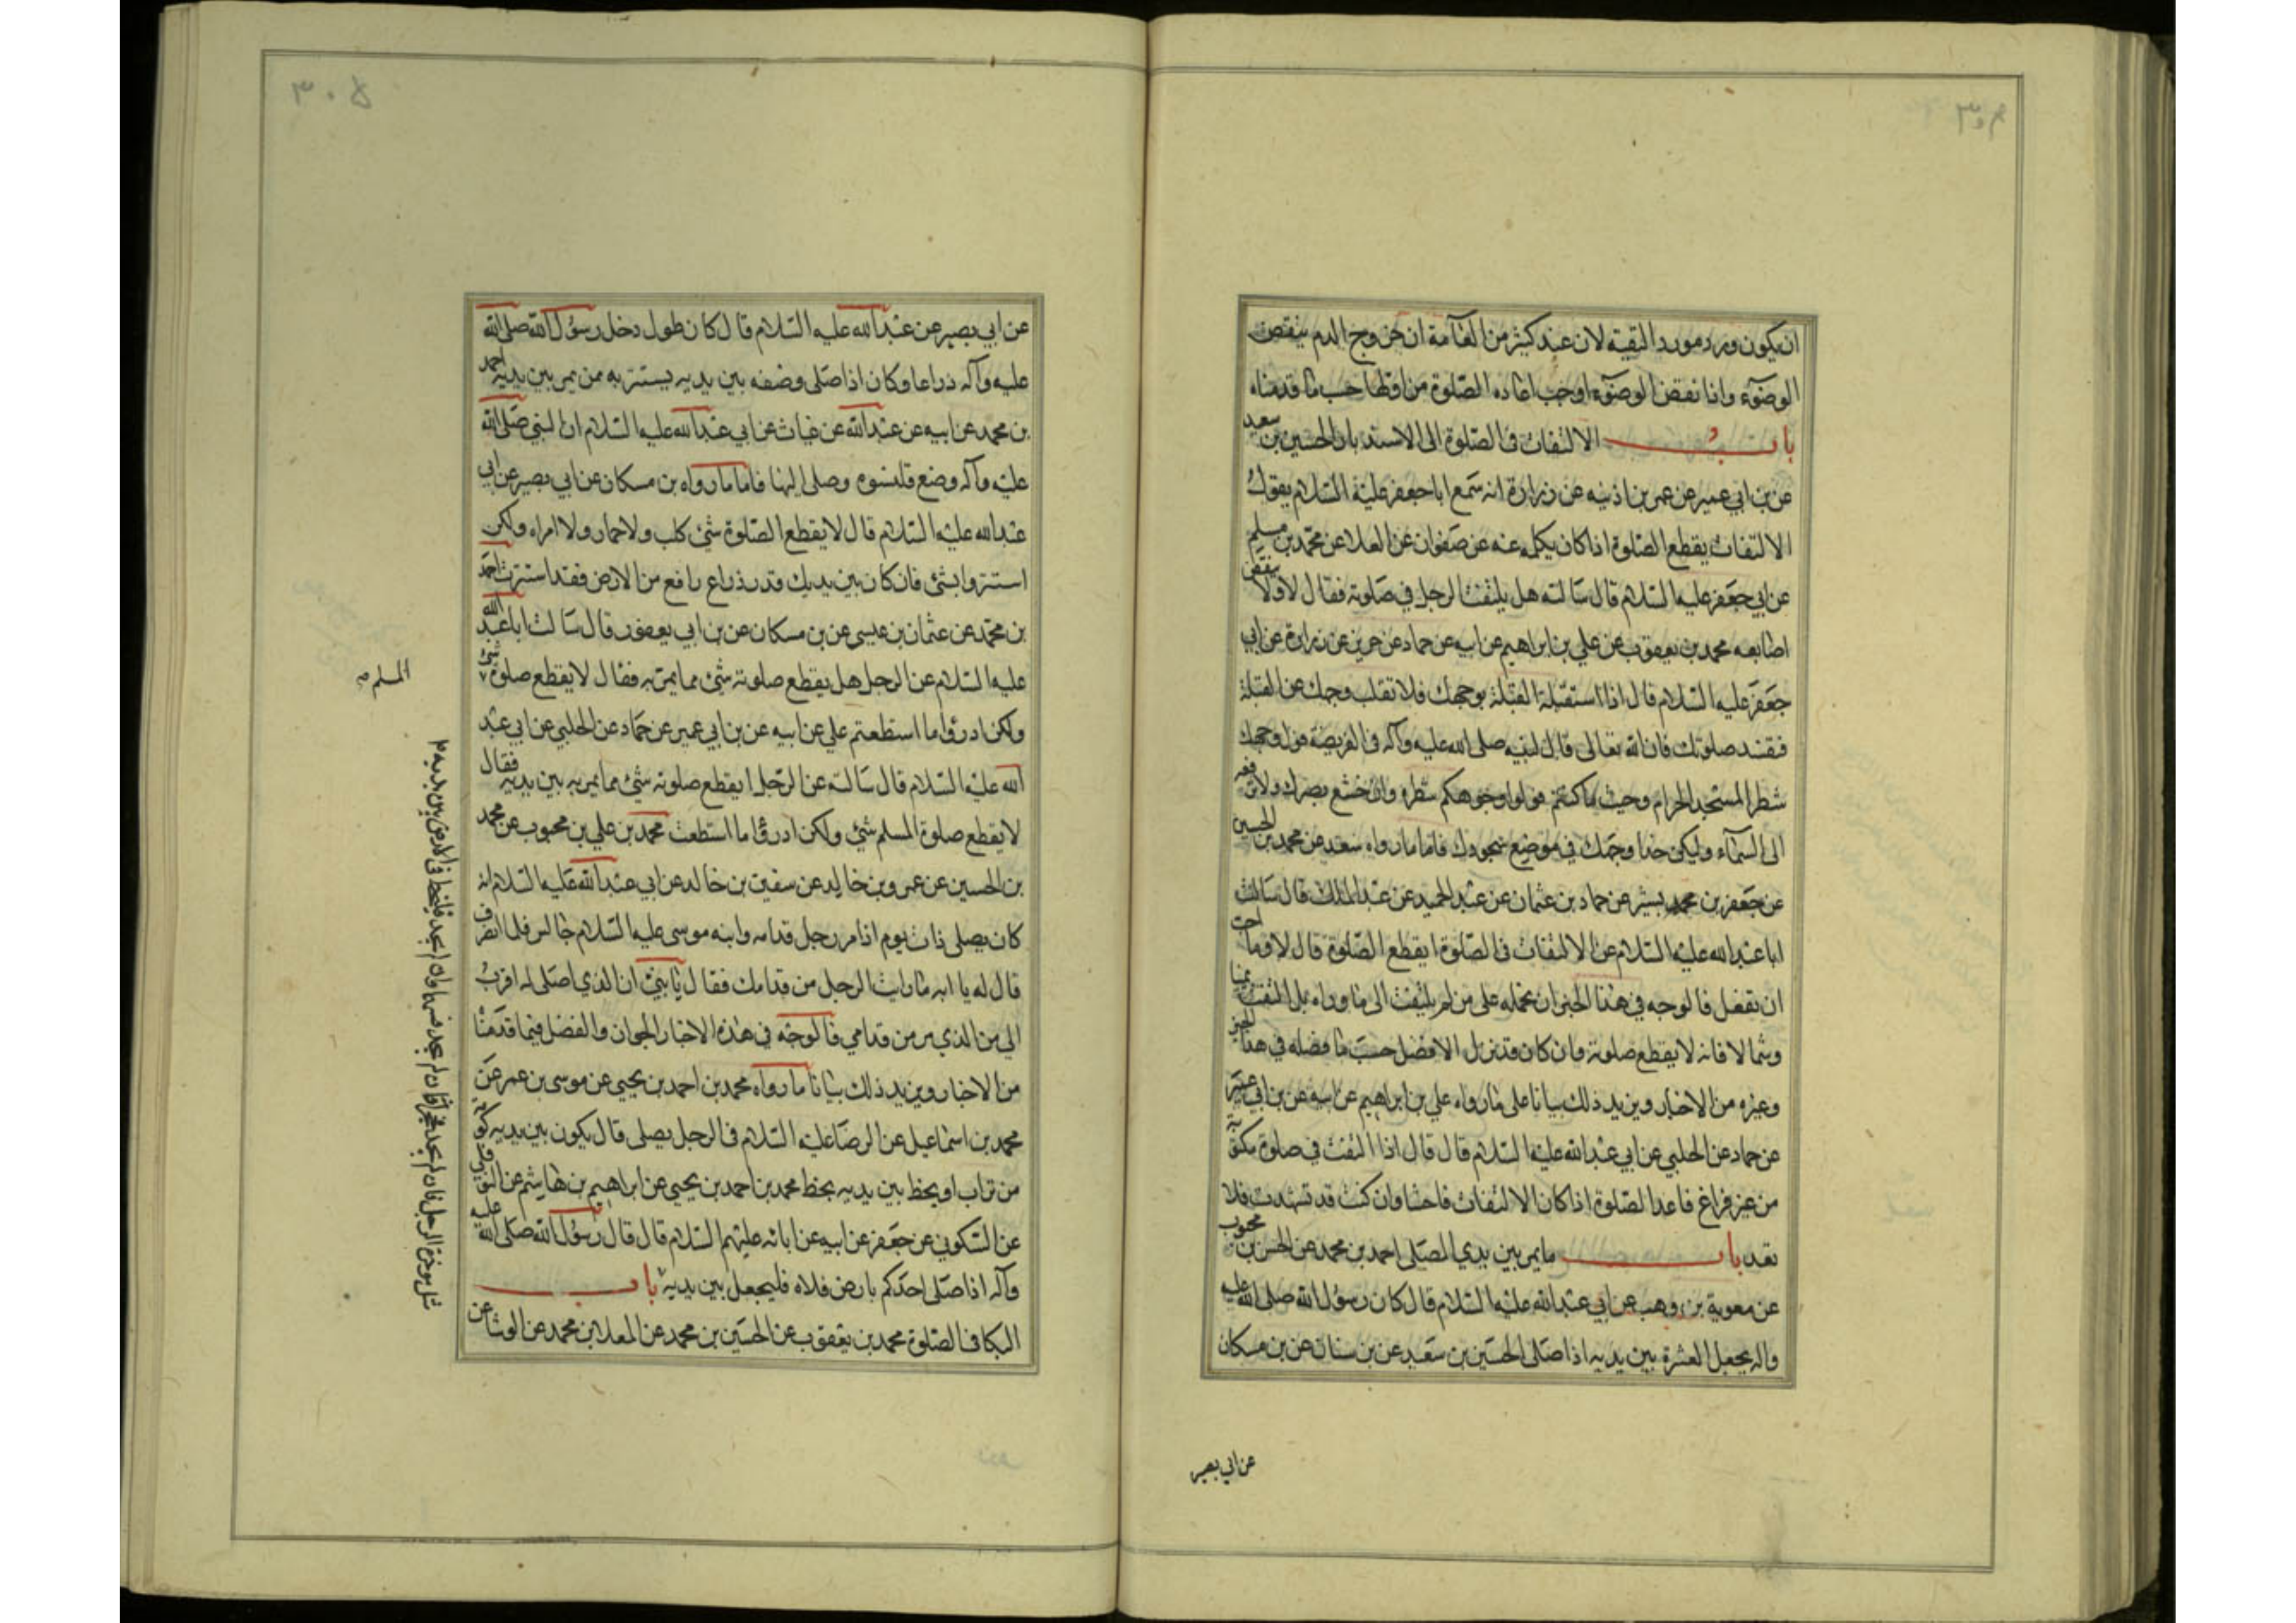 ان يكون ورد مورد التقية لان عند كثير من العامة ان خروج الدم ينقض
الوضوء وانا نقض الوضوء اوجب اعاده الصلوة من اولها حسب ما قدمناه
باب الالتفات فى الصلوة الى الاستدبار الحسين بن سعيد
عن بن ابي عمير عن عمر بن اذينه عن زرارة انه سمع ابا جعفر عليه السلام يقول
الالتفات يقطع الصلوة اذا كان بكله عنه عن صفوان عن العلا عن محمد بن مسلم
عن ابي جعفر عليه السلام قال سالته هل يلتفت الرجل في صلوته فقال لا ولا ينقض
اصابعه محمد بن يعقوب عن علي بن ابراهيم عن ابيه عن حماد عن حريز عن زرارة عن ابي
جعفر عليه السلام قال اذا استقبلة القبلة بوجهك فلا تقلب وجهك عن القبلة
فتفسد صلوتك فان الله تعالى قال لنبيه صلى الله عليه وآله فى الفريضة فول وجهك
شطر المسجد الحرام وحيث ما كنتم فولوا وجوهكم شطره وان خشع بصرك ولا ترفعه
الى السماء وليكن حذا وجهك في موضع سجودك فاما ما رواه سعد عن محمد بن الحسين
عن جعفر بن محمد بشير عن حماد بن عثمان عن عبد الحميد عن عبد الملك قال سالت
ابا عبد الله عليه السلام عن الالتفات فى الصلوة ايقطع الصلوة قال لا وما احب
ان تفعل فالوجه في هذا الخبر ان نحمله على من لم يلتفت الى ما وراه بل التفت يمينا
وشمالا فانه لا يقطع صلوته وان كان قد ترك الافضل حسب ما فصله في هذا الخبر
وغيره من الاخبار ويزيد ذلك بيانا على ما رواه علي بن ابراهيم عن ابيه عن بن ابي عمير
عن حماد عن الحلبي عن ابي عبد الله عليه السلام قال قال اذا التفت في صلوة مكتوبة
من غير فراغ فاعد الصلوة اذا كان الالتفات فاحشا وان كنت قد تشهدت فلا
تعد باب ما يمر بين يدي المصلى احمد بن محمد عن الحسن بن محبوب
عن معوية بن وهب عن ابي عبد الله عليه السلام قال كان رسول الله صلى الله عليه
واله يجعل العنزة بين يديه اذا صلى الحسين بن سعيد عن بن سنان عن بن مسكان
عن ابي بصير
٣٠٥
عن ابي بصير عن عبد الله عليه السلام قال كان طول رحل رسول الله صلى الله
عليه وآله ذراعا وكان اذا صلى وضعه بين يديه يستتر به ممن يمر بين يديه احمد
بن محمد عن ابيه عن عبد الله عن غياث عن ابي عبد الله عليه السلام ان النبي صلى الله
عليه وآله وضع قلنسوه وصلى اليها فاما ما رواه بن مسكان عن ابي بصير عن ابي
عبد الله عليه السلام قال لا يقطع الصلوة شئ كلب ولا حمار ولا امراه ولكن
استتروا بشئ فان كان بين يديك قدر ذراع رافع من الارض فقد استترت احمد
بن محمد عن عثمان بن عيسى عن بن مسكان عن بن ابي يعفور قال سالت ابا عبد الله
عليه السلام عن الرجل هل يقطع صلوته شئ مما يمر به فقال لا يقطع صلوة شئ
ولكن ادرؤا ما استطعتم علي عن ابيه عن بن ابي عمير عن حماد عن الحلبي عن ابي عبد
الله عليه السلام قال سالته عن الرجل ايقطع صلوته شئ مما يمر به بين يديه فقال
لا يقطع صلوة المسلم شئ ولكن ادرؤا ما استطعت محمد بن علي بن محبوب عن محمد
بن الحسين عن عمرو بن خالد عن سفين بن خالد عن ابي عبد الله عليه السلام انه
كان يصلى ذات يوم اذا مر رجل قدامه وابنه موسى عليه السلام جالس فلما انصرف
قال له يا ابه ما رايت الرجل مر قدامك فقال يا بني ان الذي اصلى له اقرب
الي من الذي مر من قدامي فالوجه في هذه الاخبار الجواز والفضل فيما قدمنا
من الاخبار ويزيد ذلك بيانا ما رواه محمد بن احمد بن يحيى عن موسى بن عمر عن
محمد بن اسماعيل عن الرضا عليه السلام فى الرجل يصلى قال يكون بين يديه كومة
من تراب او يخط بين يديه بخط محمد بن احمد بن يحيى عن ابراهيم بن هاشم عن النوفلى
عن السكوني عن جعفر عن ابيه عن ابائه عليهم السلام قال قال رسول الله صلى الله عليه
وآله اذا صلى احدكم بارض فلاه فليجعل بين يديه باب
البكا فى الصلوة محمد بن يعقوب عن الحسين بن محمد عن المعلا بن محمد عن الوشا عن
المسلم
مثل موخرة الرحل فان لم يجد فحجرا فان لم يجد فسهما وان لم يجد فليخط فى الارض بين يديه